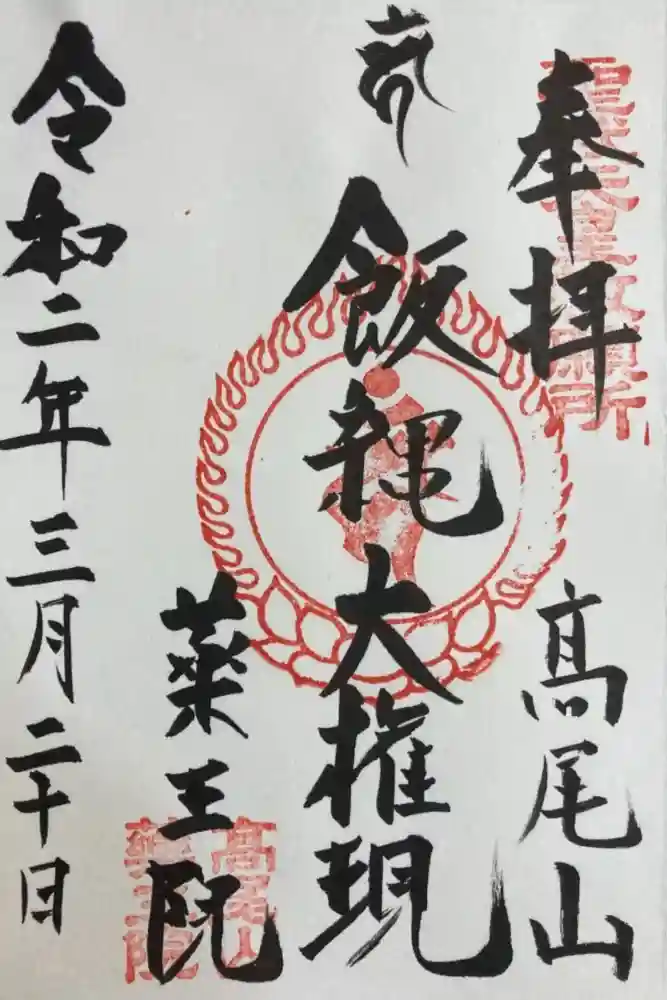 奉拝
髙尾山
飯縄大権現
薬王院
令和二年三月二十日
髙尾山
薬王院